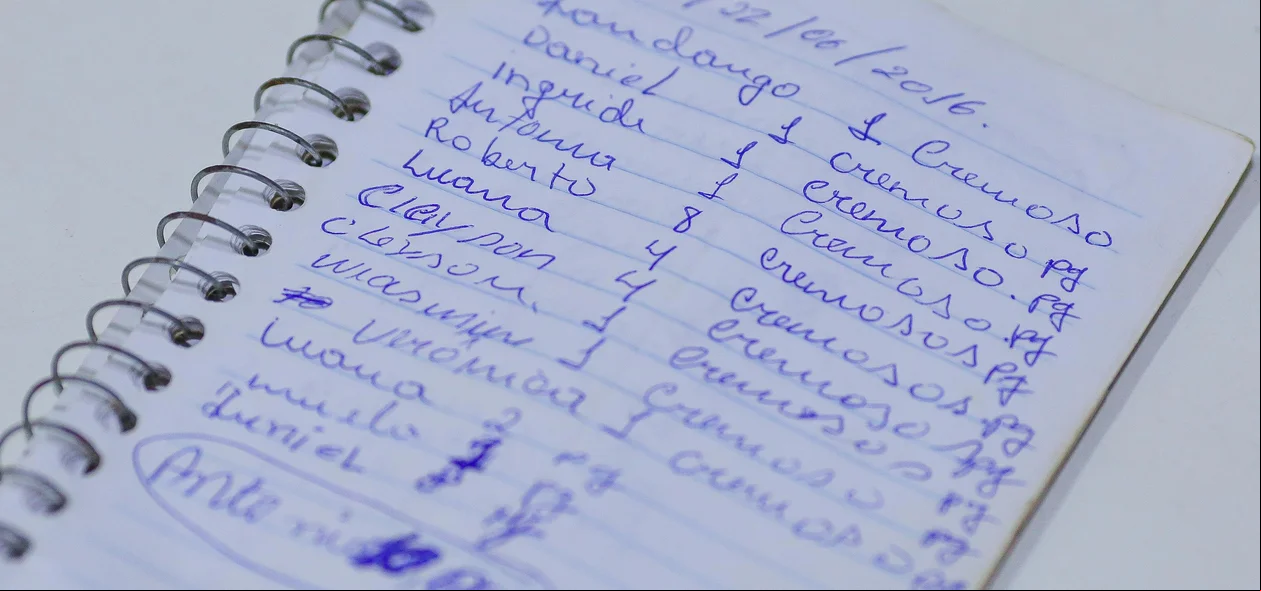 /22/06/2016.
Fandango 1 Cremoso
Daniel 1 cremoso pg
Ingride 1 cremoso. pg
Antonia 1 Cremoso. pg
Roberto 8 cremosos pg
Luana 4 cremosos. pg
Clayson 4 cremosos pg
Cleyson. 1 cremoso pg
Wiasmin 1 Cremoso pg
Verônica 1 cremoso pg
Luana 2 pg
murelo pg
Daniel